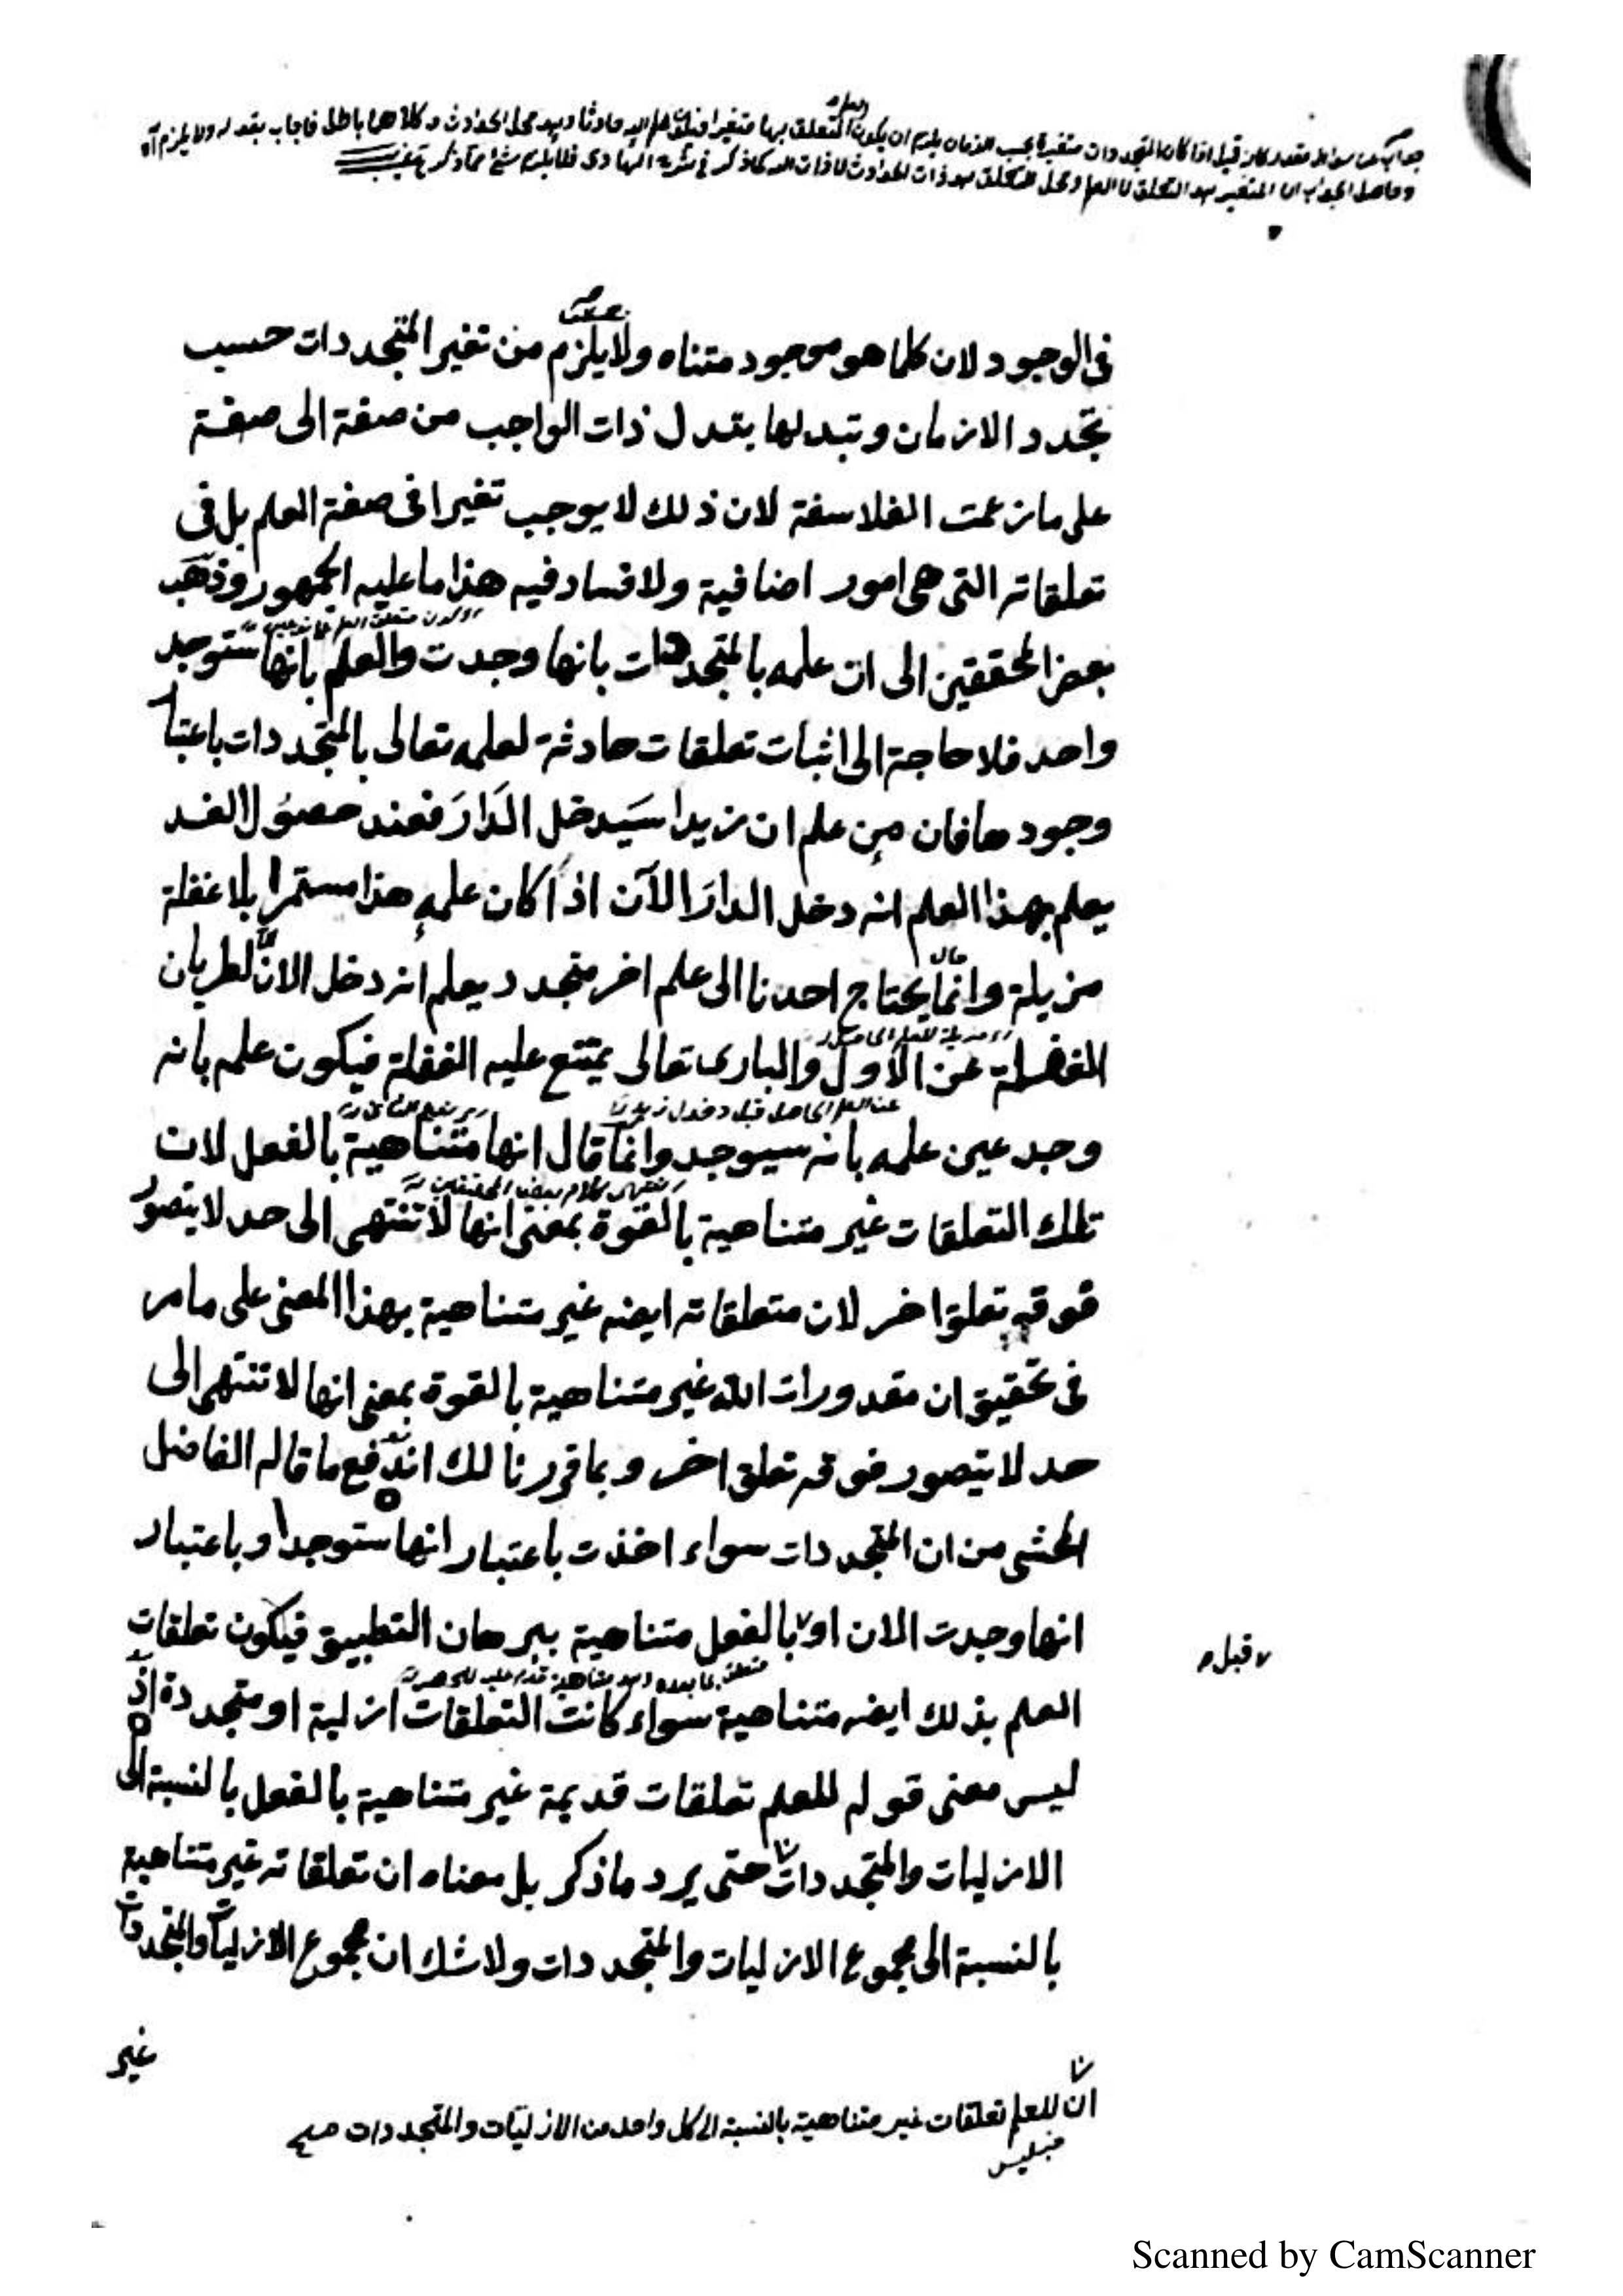 جواب عن سؤال مقدر كان قيل اذا كان المتجددات متغيرة بحسب الازمان يلزم ان يكون العلم المتعلق بها متغيرا فتكون حادثا وهو محل الحوادث وكلاهما باطل فاجاب بقوله ولا يلزم آه
وحاصل الجواب ان المتغير هو التعلق لا العلم ومحل التعلق هو ذات الحوادث لا ذات الله كما ذكر في فلا يلزم شئ مما ذكر
فى الوجود لان كلما هو موجود متناه ولا يلزم من تغير المتجددات حسب
تجدد الازمان وتبدلها بتدل ذات الواجب من صفة الى صفة
على ما زعمت الفلاسفة لان ذلك لا يوجب تغيرا فى صفة العلم بل فى
تعلقاته التى هى امور اضافية ولا فساد فيه هذا ما عليه الجمهور وذهب
بعض المحققين الى ان علمه بالمتجددات بانها وجدت والعلم بانها ستوجد
واحد فلا حاجة الى اثبات تعلقات حادثة لعلمه تعالى بالمتجددات باعتبار
وجودها فان من علم ان زيدا سَيدخل الدَارَ فعند حصول الغد
يعلم بهذا العلم انه دخل الدارَ الآن اذا كان علمهِ هذا مستمرا بلا غفلة
مزيلة وانّما يحتاج احدنا الى علم اخر متجدد يعلم انه دخل الانَ لطريان
الغفلة عن الاول والبارى تعالى يمتنع عليه الغفلة فيكون علمه بانه
عن العلم الحاصل قبل دخول زيد
وجد عين علمه بانه سيوجد وانما قال انها متناهية بالفعل لان
انتهى كلام بعض المحققين
تلك التعلقات غير متناهية بالقوة بمعنى انها لا تنتهى الى حد لا يتصور
فوقه تعلق اخر لان متعلقاته ايضه غير متناهية بهذا المعنى على ما مر
فى تحقيق ان مقدورات الله غير متناهية بالقوة بمعنى انها لا تنتهى الى
حد لا يتصور فوقه تعلق اخر وبما قررنا لك اندفع ما قاله الفاضل
المحشى من ان المتجددات سواء اخذت باعتبار انها ستوجد او باعتبار
انها وجدت الان او بالفعل متناهية ببرهان التطبيق فيكون تعلقات
قبل
متعلق بما بعده
العلم بذلك ايضه متناهية سواء كانت التعلقات ازلية او متجددة اذ
ليس معنى قوله للعلم تعلقات قديمة غير متناهية بالفعل بالنسبة الى
الازليات والمتجددات حتى يرد ما ذكر بل معناه ان تعلقاته غير متناهية
بالنسبة الى مجموع الازليات والمتجددات ولا شك ان مجموع الازليات والمتجددات
غير
انّ للعلم تعلقات غير متناهية بالنسبة الى كل واحد من الازليّات والمتجددات صح
Scanned by CamScanner